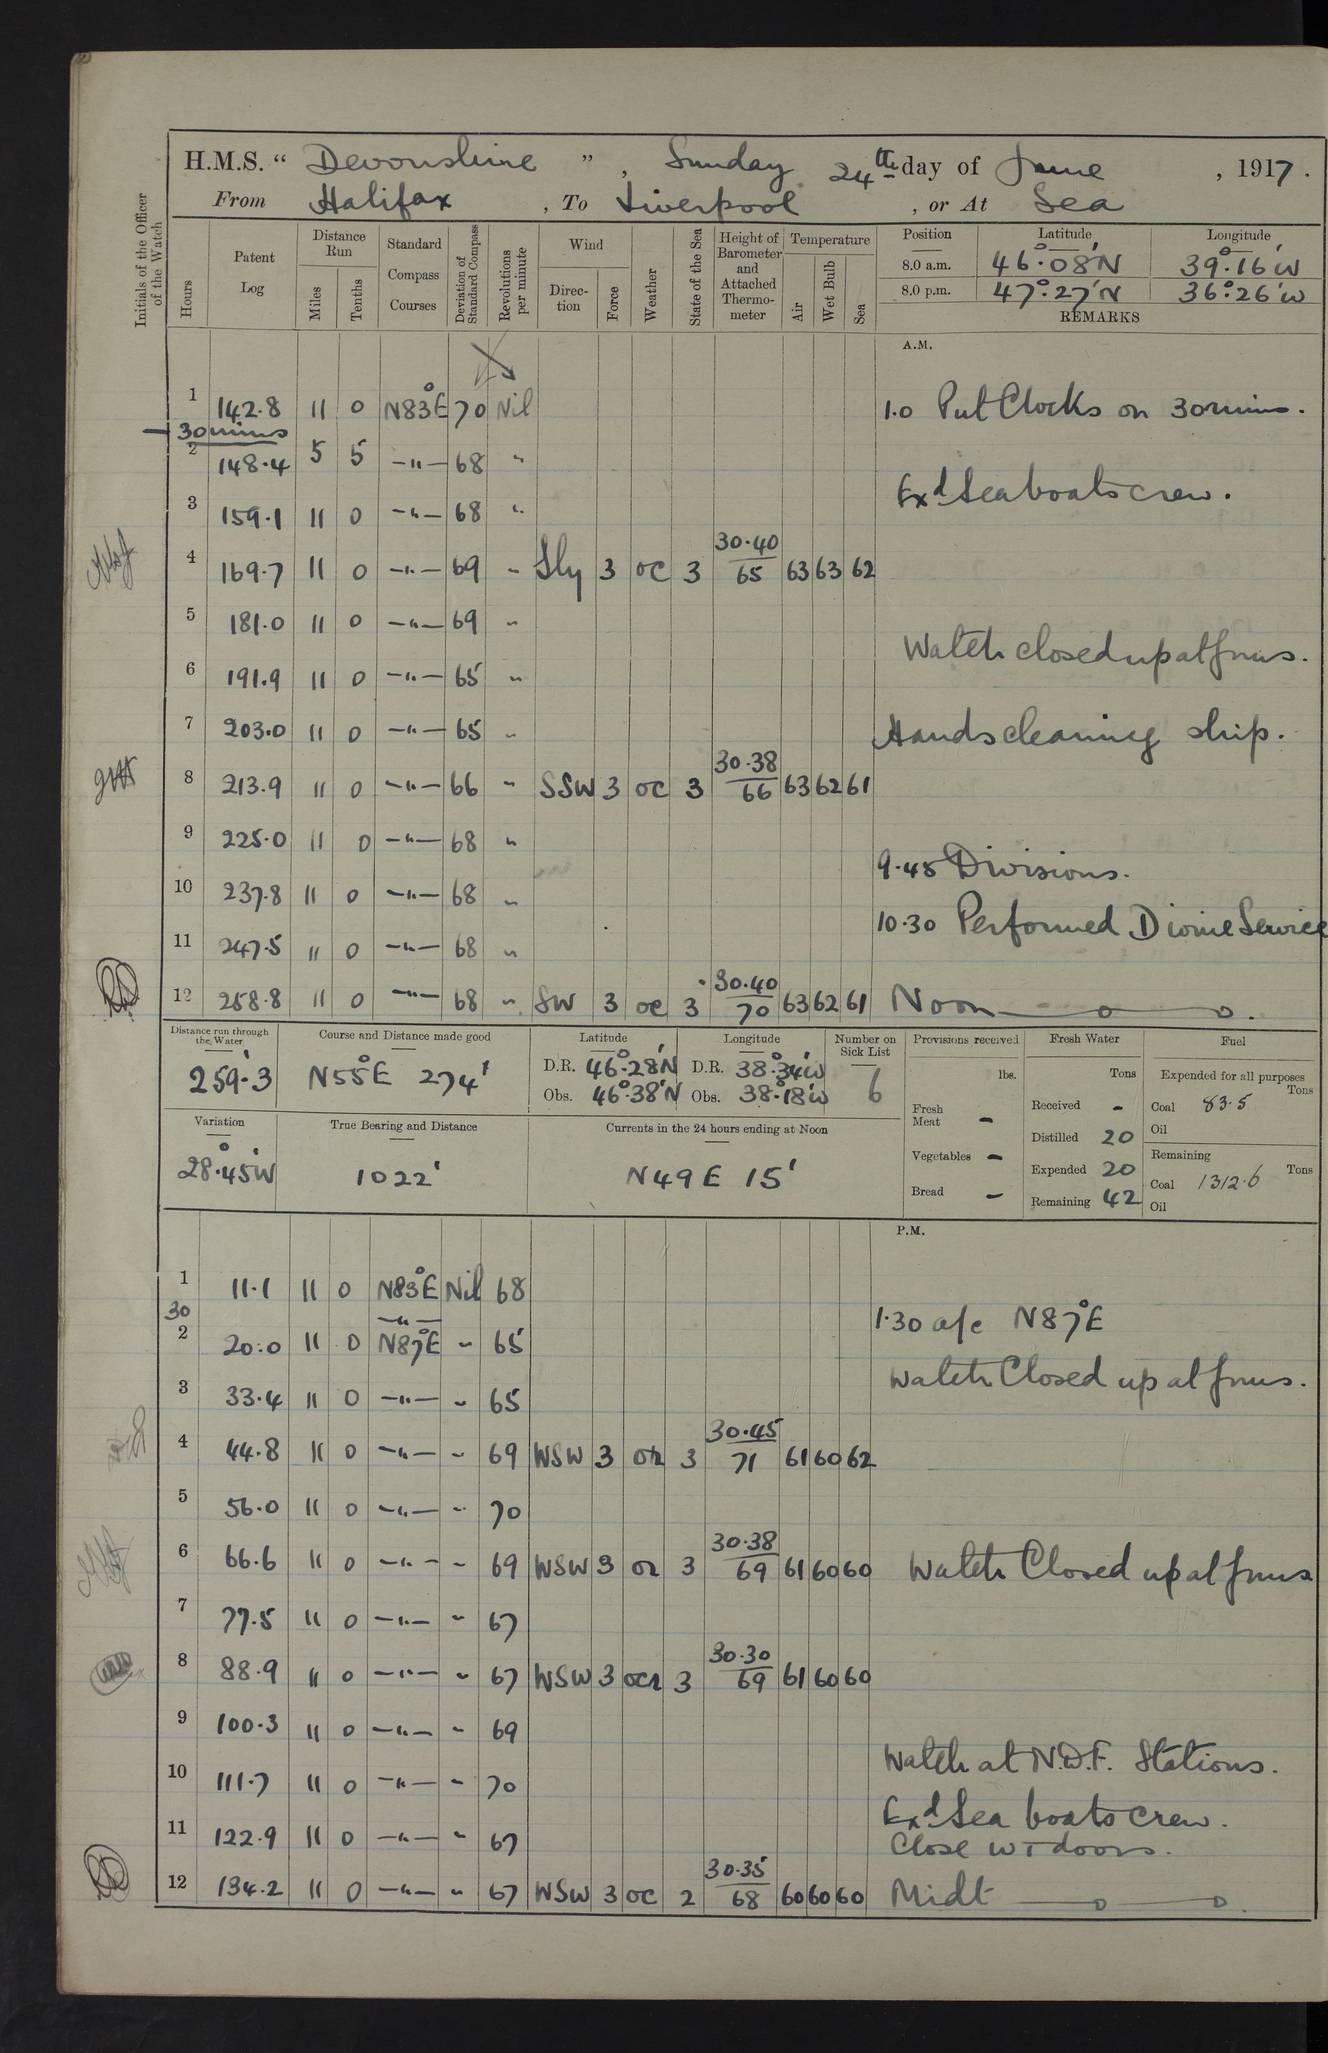 H.M.S. " Devonshire " , Sunday 24th day of June , 1917 .
From Halifax , To Liverpool , or At Sea
Initials of the Officer of the Watch
Hours
Patent Log
Distance Run
Miles
Tenths
Standard Compass Courses
Deviation of Standard Compass
Revolutions per minute
Wind
Direc-tion
Force
Weather
State of the Sea
Height of Barometer and Attached Thermo-meter
Temperature
Air
Wet Bulb
Sea
Position Latitude Longitude
8.0 a.m. 46°.08'N 39°.16'W
8.0 p.m. 47°.27'N 36°.26'W
REMARKS
A.M.
1 142.8 11 0 N83°E 70 Nil 1.0 Put Clocks on 30 mins.
- 30 mins
2 148.4 5 5 -"- 68 "
Exd Sea boats crew.
3 159.1 11 0 -"- 68 "
4 169.7 11 0 -"- 69 " Sly 3 oc 3 30.40/65 63 63 62
5 181.0 11 0 -"- 69 "
Watch closed up at guns.
6 191.9 11 0 -"- 65 "
7 203.0 11 0 -"- 65 " Hands cleaning ship.
8 213.9 11 0 -"- 66 " SSW 3 oc 3 30.38/66 63 62 61
9 225.0 11 0 -"- 68 "
9.45 Divisions.
10 237.8 11 0 -"- 68 "
10.30 Performed Divine Service
11 247.5 11 0 -"- 68 "
12 258.8 11 0 -"- 68 " SW 3 oc 3 30.40/70 63 62 61 Noon
Distance run through the Water
259.3
Course and Distance made good
N55°E 274'
Latitude
D.R. 46°.28'N
Obs. 46°.38'N
Longitude
D.R. 38°.34'W
Obs. 38°.18'W
Number on Sick List
6
Variation
28°.45'W
True Bearing and Distance
1022'
Currents in the 24 hours ending at Noon
N49E 15'
Provisions received
lbs.
Fresh Meat -
Vegetables -
Bread -
Fresh Water
Tons
Received -
Distilled 20
Expended 20
Remaining 42
Fuel
Expended for all purposes
Tons
Coal 83.5
Oil
Remaining
Tons
Coal 1312.6
Oil
P.M.
1 11.1 11 0 N83°E Nil 68
30 -"- 1.30 a/c N87°E
2 20.0 11 0 N87°E " 65
Watch Closed up at guns.
3 33.4 11 0 -"- " 65
4 44.8 11 0 -"- " 69 WSW 3 or 3 30.45/71 61 60 62
5 56.0 11 0 -"- " 70
6 66.6 11 0 -"- " 69 WSW 3 or 3 30.38/69 61 60 60 Watch Closed up at guns
7 77.5 11 0 -"- " 67
8 88.9 11 0 -"- " 67 WSW 3 ocr 3 30.30/69 61 60 60
9 100.3 11 0 -"- " 69
Watch at N.D.F. Stations.
10 111.7 11 0 -"- " 70
Exd Sea boats crew.
11 122.9 11 0 -"- " 67 Close WT doors.
12 134.2 11 0 -"- " 67 WSW 3 oc 2 30.35/68 60 60 60 Midt